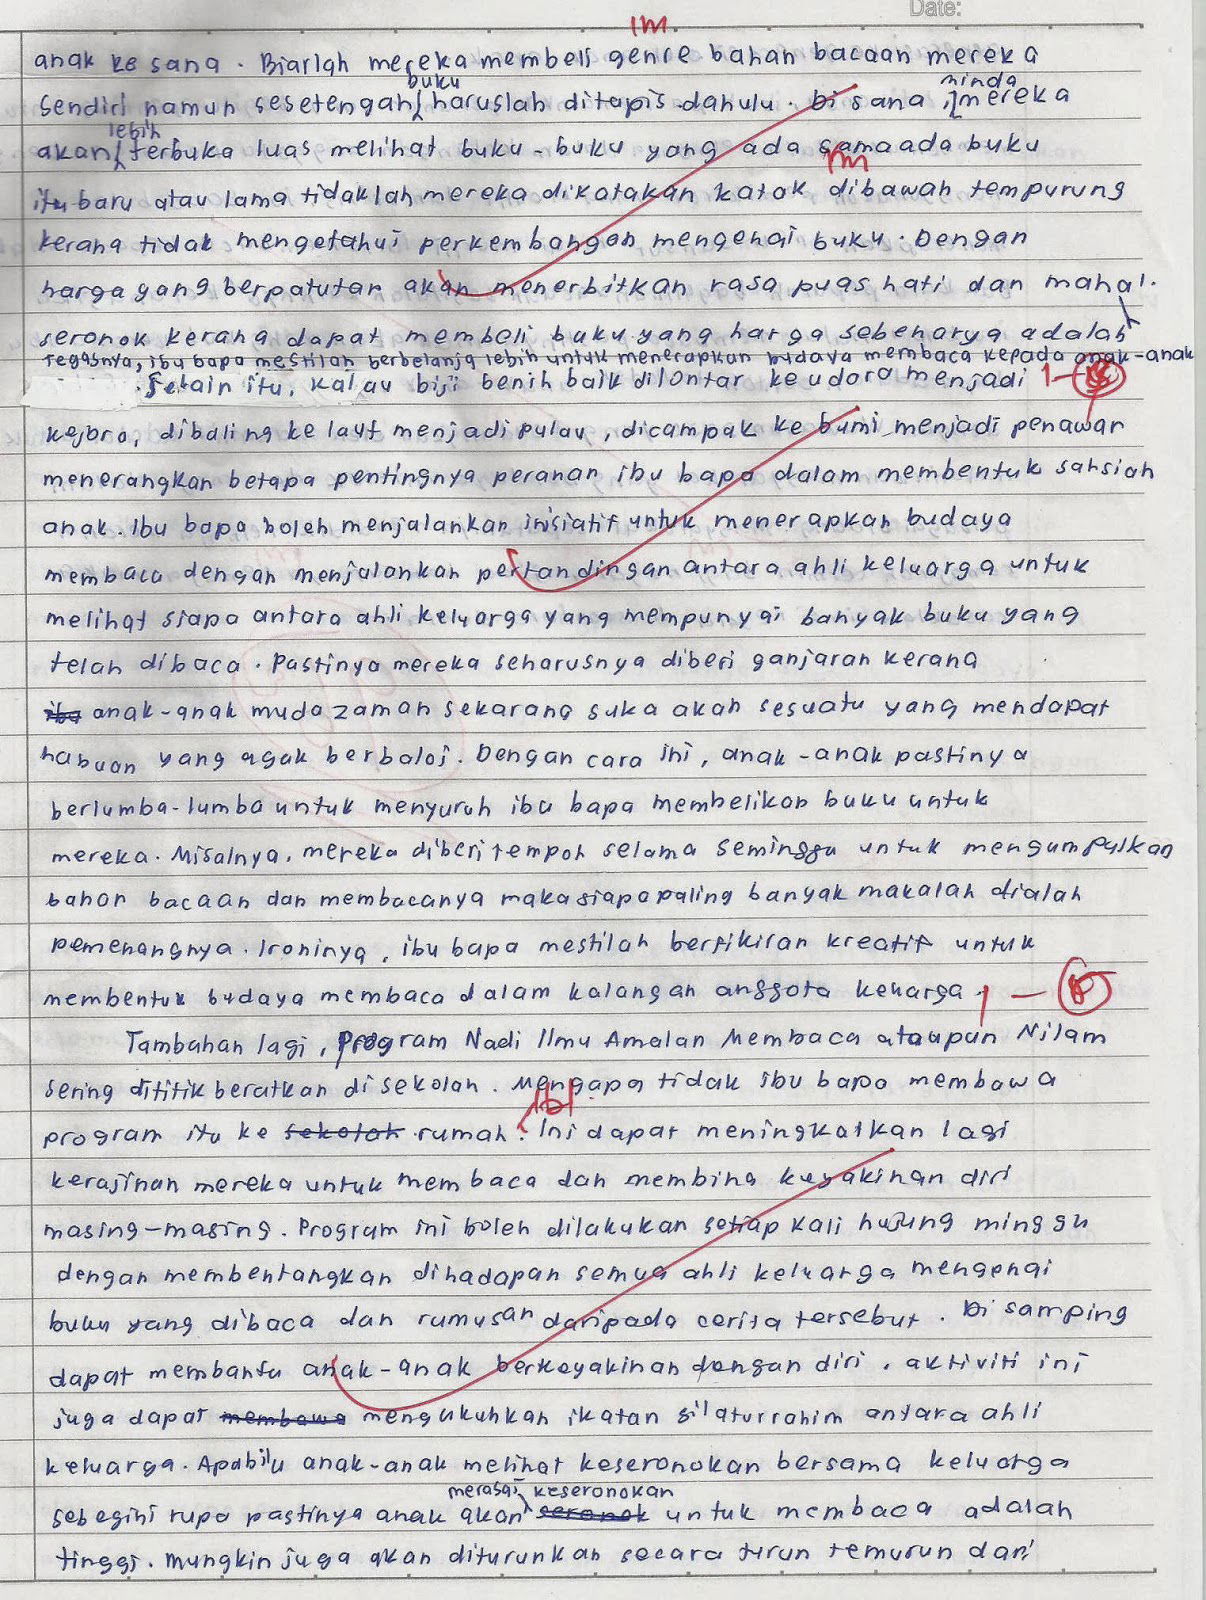 Date:
1m
anak ke sana. Biarlah mereka membeli genre bahan bacaan mereka
buku
minda
sendiri namun sesetengah haruslah ditapis dahulu. Di sana, mereka
lebih
akan terbuka luas melihat buku-buku yang ada samaada buku
itu baru atau lama tidaklah mereka dikatakan katak dibawah tempurung
kerana tidak mengetahui perkembangan mengenai buku. Dengan
harga yang berpatutan akan menerbitkan rasa puas hati dan mahal.
seronok kerana dapat membeli buku yang harga sebenarya adalah
Tegasnya, ibu bapa mestilah berbelanja lebih untuk menerapkan budaya membaca kepada anak-anak
Selain itu, kalau biji benih baik dilontar ke udara menjadi
kejora, dibaling ke laut menjadi pulau, dicampak ke bumi menjadi penawar
menerangkan betapa pentingnya peranan ibu bapa dalam membentuk sahsiah
anak. Ibu bapa boleh menjalankan inisiatif untuk menerapkan budaya
membaca dengan menjalankan pertandingan antara ahli keluarga untuk
melihat siapa antara ahli keluarga yang mempunyai banyak buku yang
telah dibaca. Pastinya mereka seharusnya diberi ganjaran kerana
iba anak-anak muda zaman sekarang suka akan sesuatu yang mendapat
habuan yang agak berbaloi. Dengan cara ini, anak-anak pastinya
berlumba-lumba untuk menyuruh ibu bapa membelikan buku untuk
mereka. Misalnya, mereka diberi tempoh selama seminggu untuk mengumpulkan
bahan bacaan dan membacanya maka siapa paling banyak makalah dialah
pemenangnya. Ironinya, ibu bapa mestilah berfikiran kreatif untuk
membentuk budaya membaca dalam kalangan anggota keharga.
Tambahan lagi, Program Nadi Ilmu Amalan Membaca ataupun Nilam
sering dititik beratkan di sekolah. Mengapa tidak ibu bapa membawa
program itu ke sekolah rumah? Ini dapat meningkatkan lagi
kerajinan mereka untuk membaca dan membina keyakinan diri
masing-masing. Program ini boleh dilakukan setiap kali hujung minggu
dengan membentangkan dihadapan semua ahli keluarga mengenai
buku yang dibaca dan rumusan daripada cerita tersebut. Di samping
dapat membantu anak-anak berkeyakinan dengan diri, aktiviti ini
juga dapat membawa mengukuhkan ikatan silaturrahim antara ahli
keluarga. Apabila anak-anak melihat keseronokan bersama keluarga
merasai keseronokan
sebegini rupa pastinya anak akan seronok untuk membaca adalah
tinggi. Mungkin juga akan diturunkan secara turun temurun dari